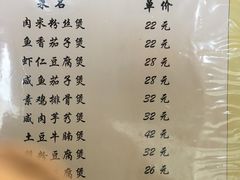 菜名 单价
肉米粉丝煲 22元
鱼香茄子煲 22元
虾仁豆腐煲 28元
咸鱼茄子煲 28元
素鸡排骨煲 32元
咸肉手珍煲 32元
土豆牛腩煲 42元
粉豆腐煲 32元
腐煲 26元